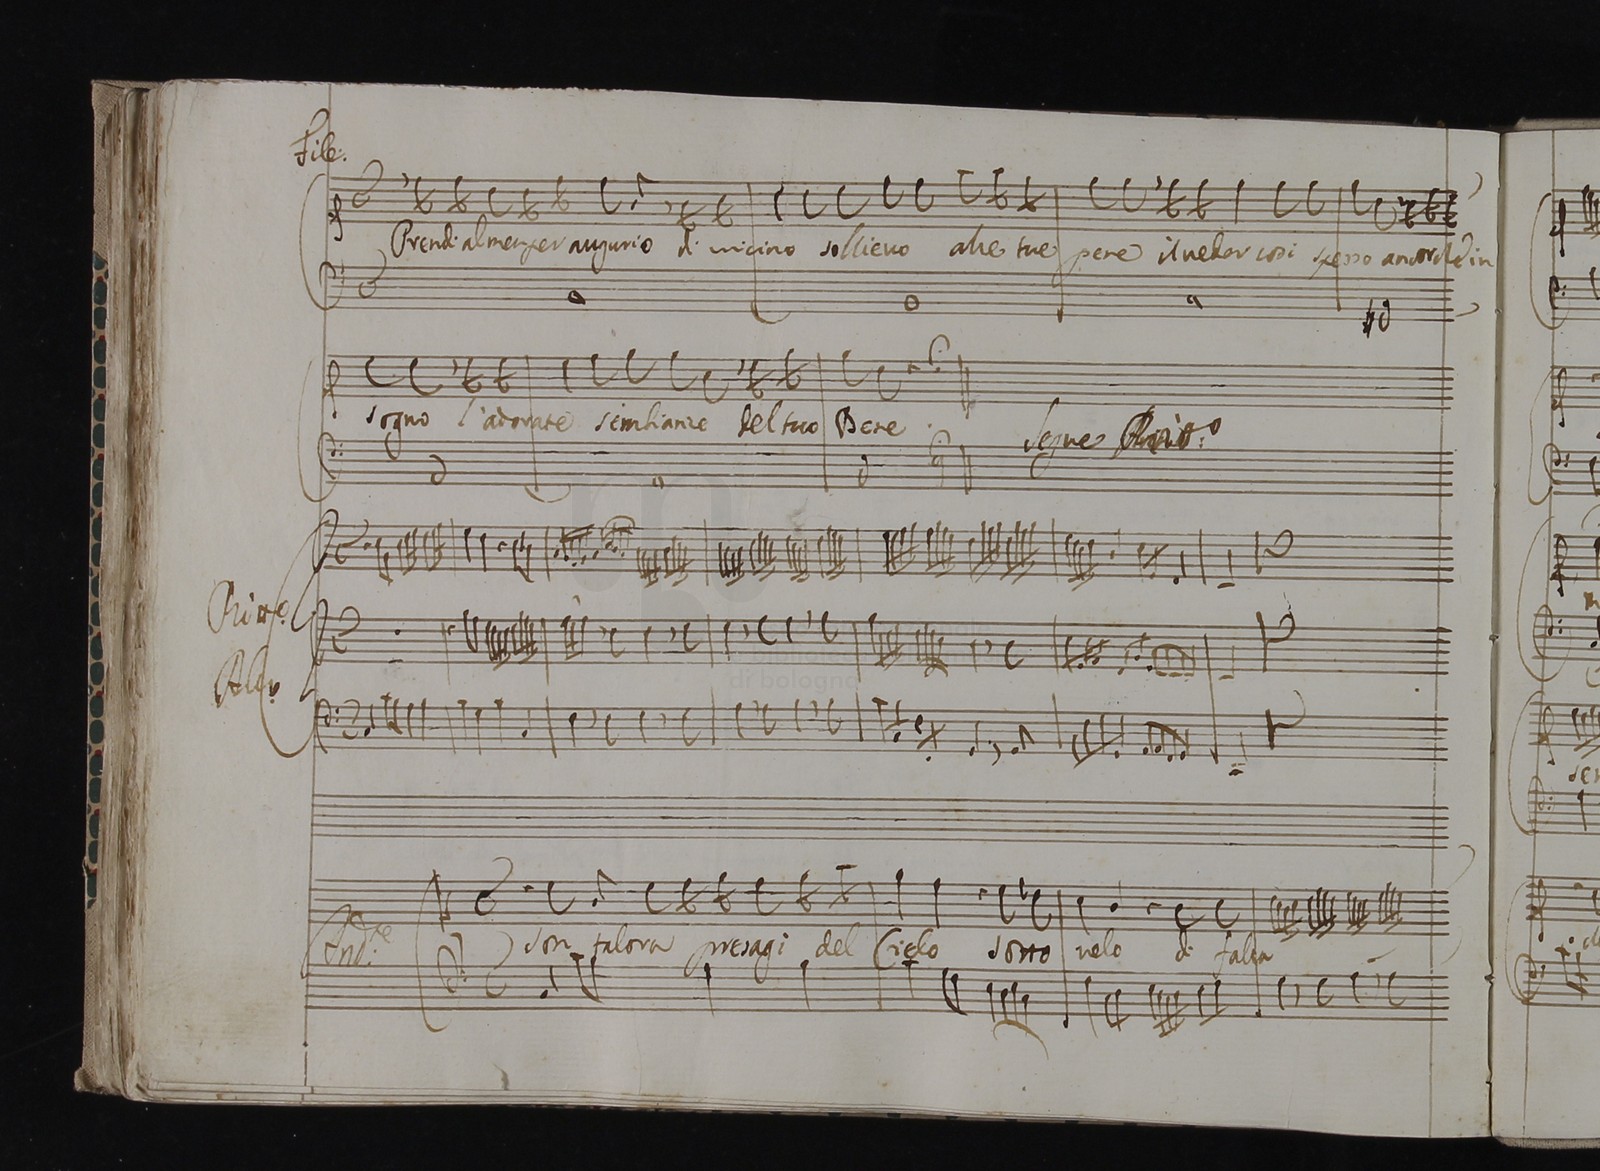 File.
Prendi almen per augurio di vicino sollievo alle tue pene il veder così spesso ancorche in
sogno l'adorate sembianze del tuo Bene.
Segue Ritto:
Ritto.
Allo.
Andte
Son talora presagi del Cielo sotto velo di falsa